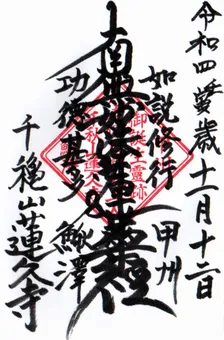 令和四
歳十一月十二日
如説修行 甲州
南無妙法蓮華経
功徳甚多 鰍澤
千穐山蓮久寺